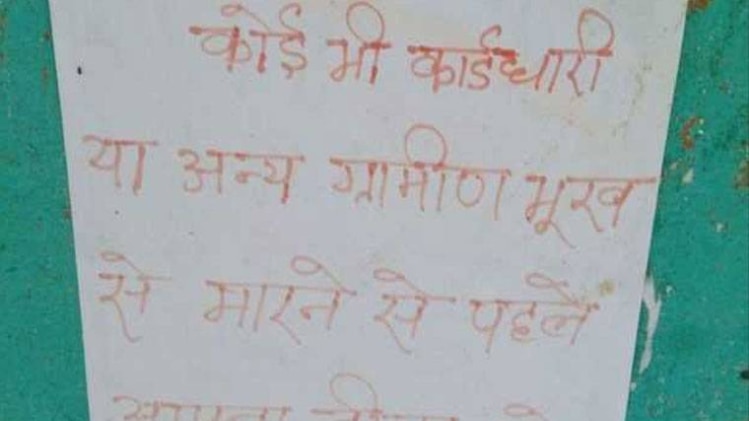 कोई भी कार्डधारी
या अन्य ग्रामीण भूख
से मारने से पहले